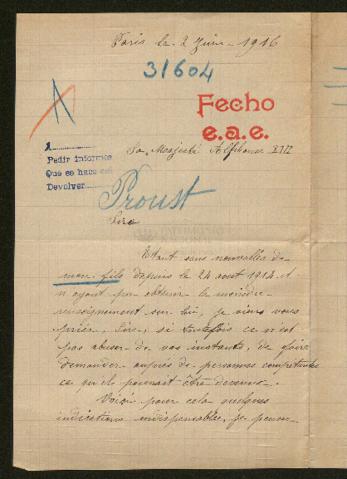 Paris le 2 Juin 1916
31604
Fecho
e.a.e.
Sa Majesté Alphonse XIII
A
Pedir informes
Que se hace
Devolver
Proust
Sire
Etant sans nouvelles de
mon fils depuis le 24 aout 1914 et
n'ayant pu obtenir le moindre
renseignement sur lui, je viens vous
prier, Sire, si toutefois ce n'est
pas abuser de vos instants, de faire
demander auprès de personnes compétentes
ce qu'il pourrait être devenu.
Voici pour cela quelques
indications indispensables, je pense